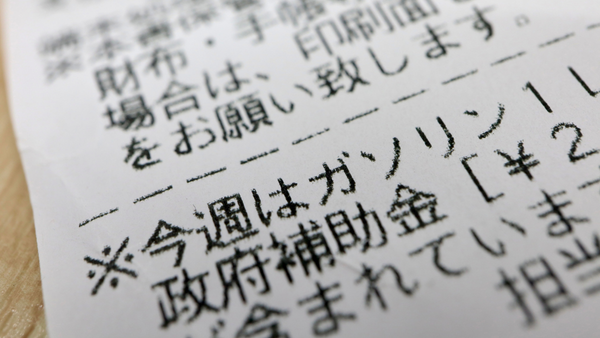 ※本書保管
財布・手帳
場合は、印刷面
をお願い致します。
※今週はガソリン1L
政府補助金[¥2
が含まれていま
担当